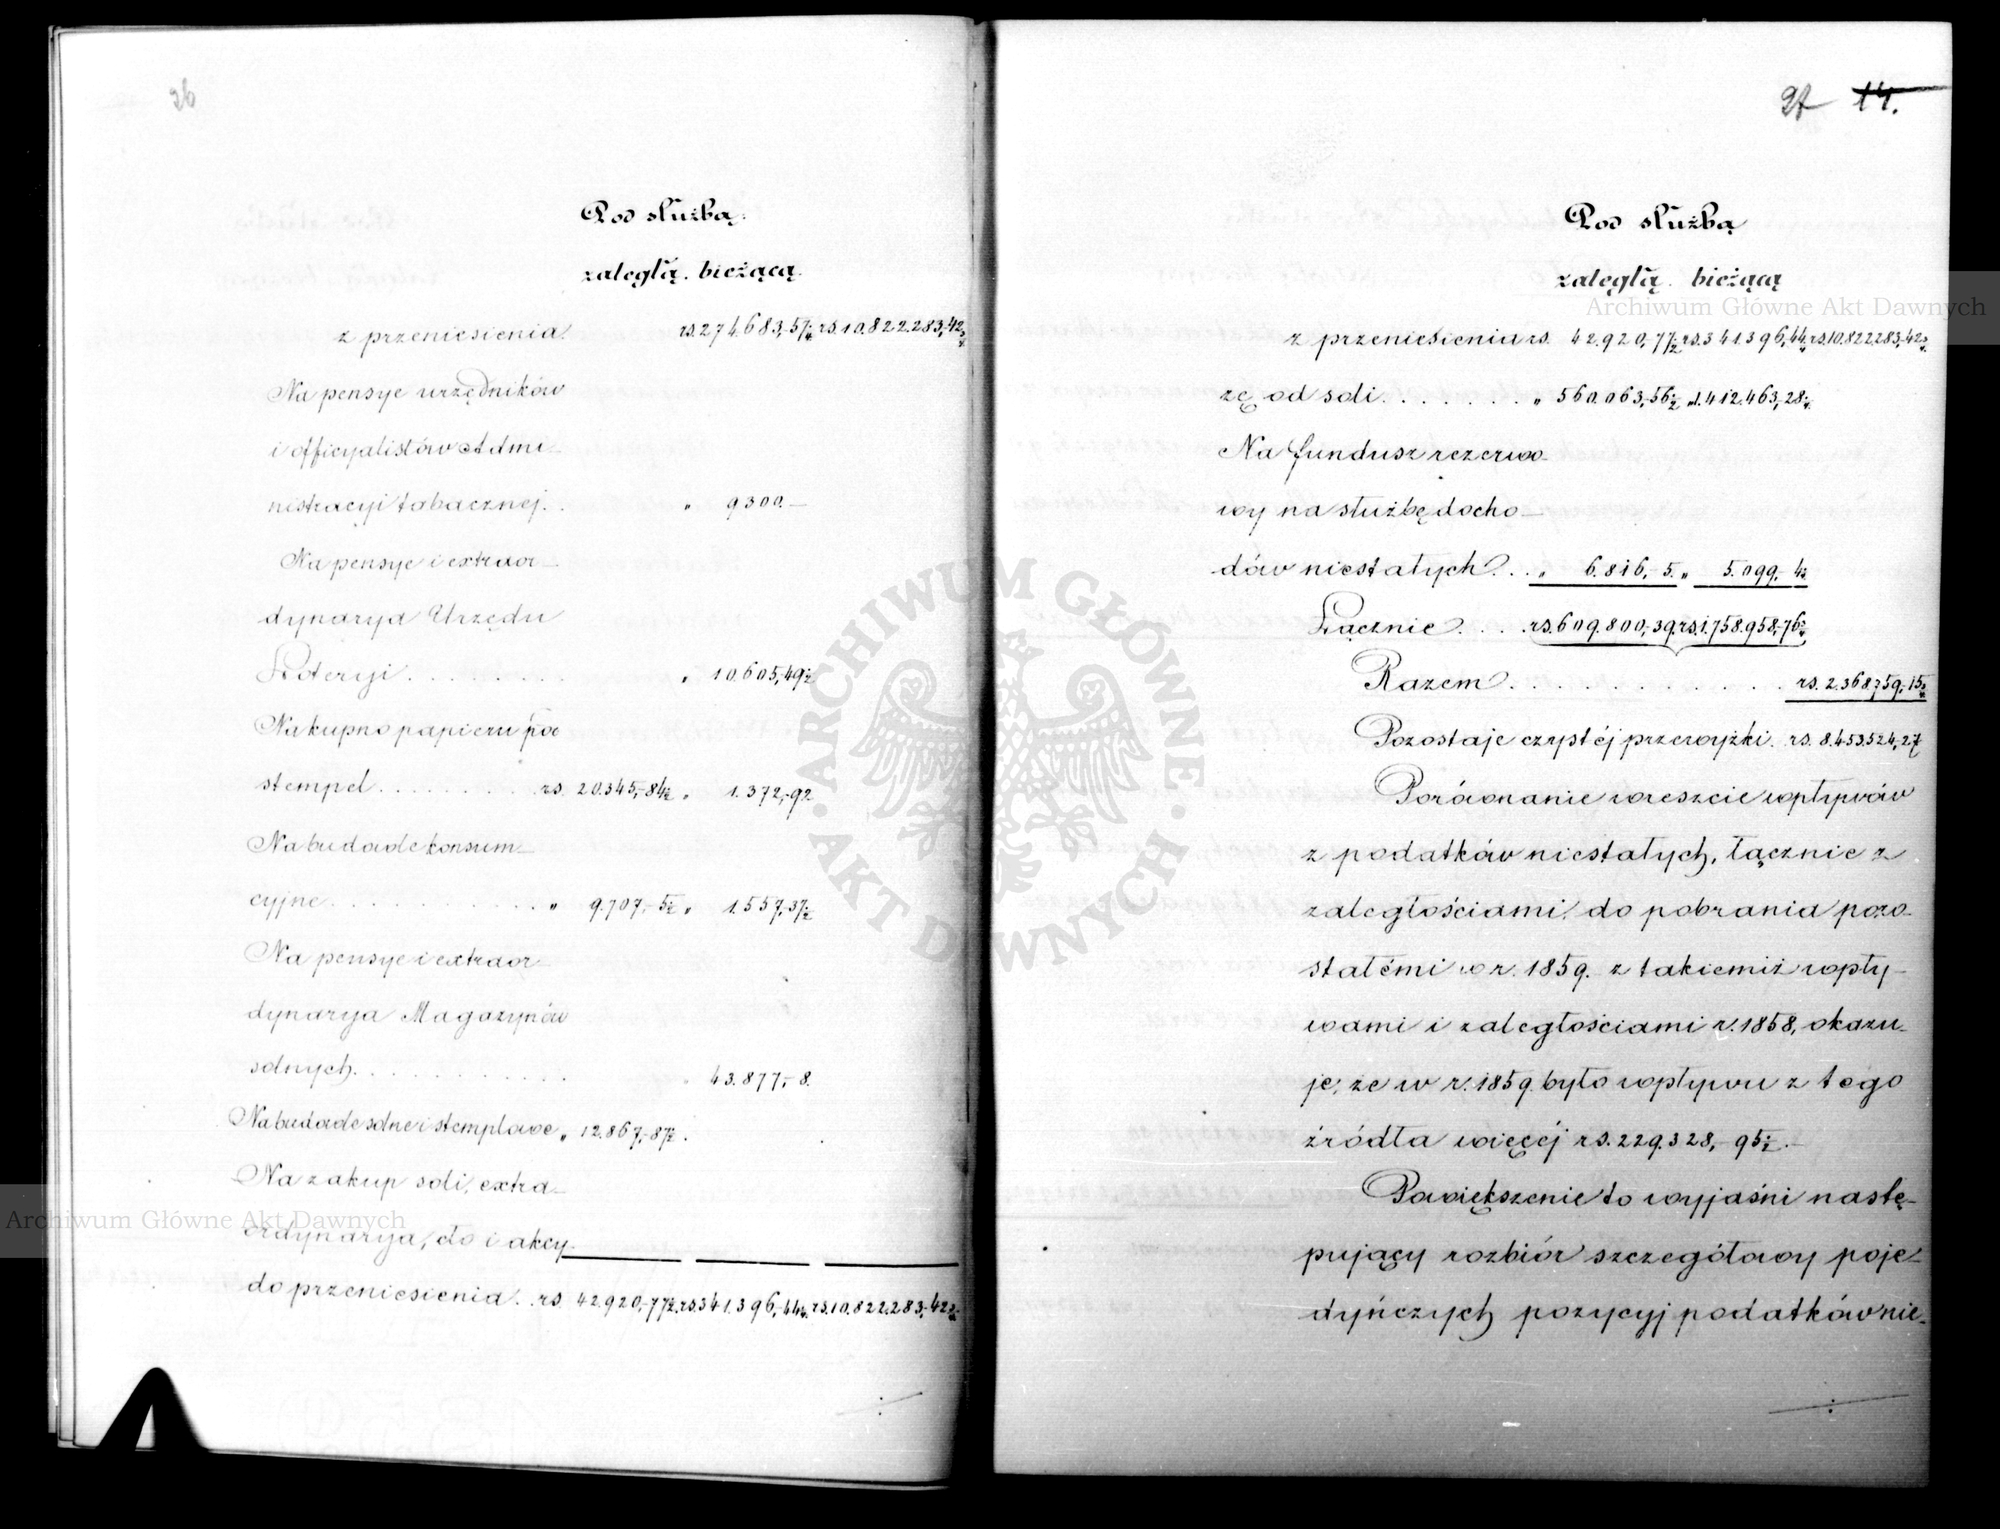 26
Pod służbą
zaległą. bieżącą.
z przeniesienia rs. 274.683,-57 1/4 rs. 10.822.283,-42 3/4
Na pensye urzędników
i officyalistów Admi-
nistracyi tabacznej. . " 9300.—
Na pensye i extraor-
dynarya Urzędu
Loteryi . . . . . . . . " 10.605,-49 1/2
Na kupno papieru pod
stempel . . . . . . . . rs. 20.345,-84 1/2 " 1.372,-92
Na budowle konsum-
cyjne . . . . . . . . . . " 9.707,-5 1/2 " 1.557,-37 1/2
Na pensye i extraor-
dynarya Magazynów
solnych . . . . . . . . . . . " 43.877,-8.
Na budowle solne i stemplowe " 12.867,-87 1/2 .
Na zakup soli, extra-
ordynarya, cło i akcy-
do przeniesienia. rs. 42.920,-77 1/2 rs. 341.396,-44 1/4 rs. 10.822.283,-42 3/4
27 14.
Pod służbą
zaległą. bieżącą
z przeniesienia rs. 42.920,-77 1/2 rs. 341.396,-44 1/4 rs. 10.822.283,-42 3/4
zę od soli . . . . . . . " 560.063,-56 1/2 " 1.412.463,-28 1/4
Na fundusz rezerwo-
wy na służbę docho-
dów niestałych . . . " 6.816,-5. " 5.099,-4
Łącznie . . . . rs. 609.800,-39. rs. 1.758.958,-76 3/4
Razem . . . . . . . . . . . . . rs. 2.368.759,-15 3/4
Pozostaje czystéj przewyżki. rs. 8.453.524,-27
Porównanie wreszcie wpływów
z podatków niestałych, łącznie z
zaległościami, do pobrania pozo-
stałémi w r. 1859. z takiemiż wpły-
wami i zaległościami r. 1858, okazu-
je, że w r. 1859. było wpływu z tego
źródła więcéj rs. 229.328,-95 1/2.—
Powiększenie to wyjaśni nastę-
pujący rozbiór szczegółowy poje-
dyńczych pozycyj podatków nie-
Archiwum Główne Akt Dawnych
Archiwum Główne Akt Dawnych
ARCHIWUM GŁÓWNE · AKT DAWNYCH ·